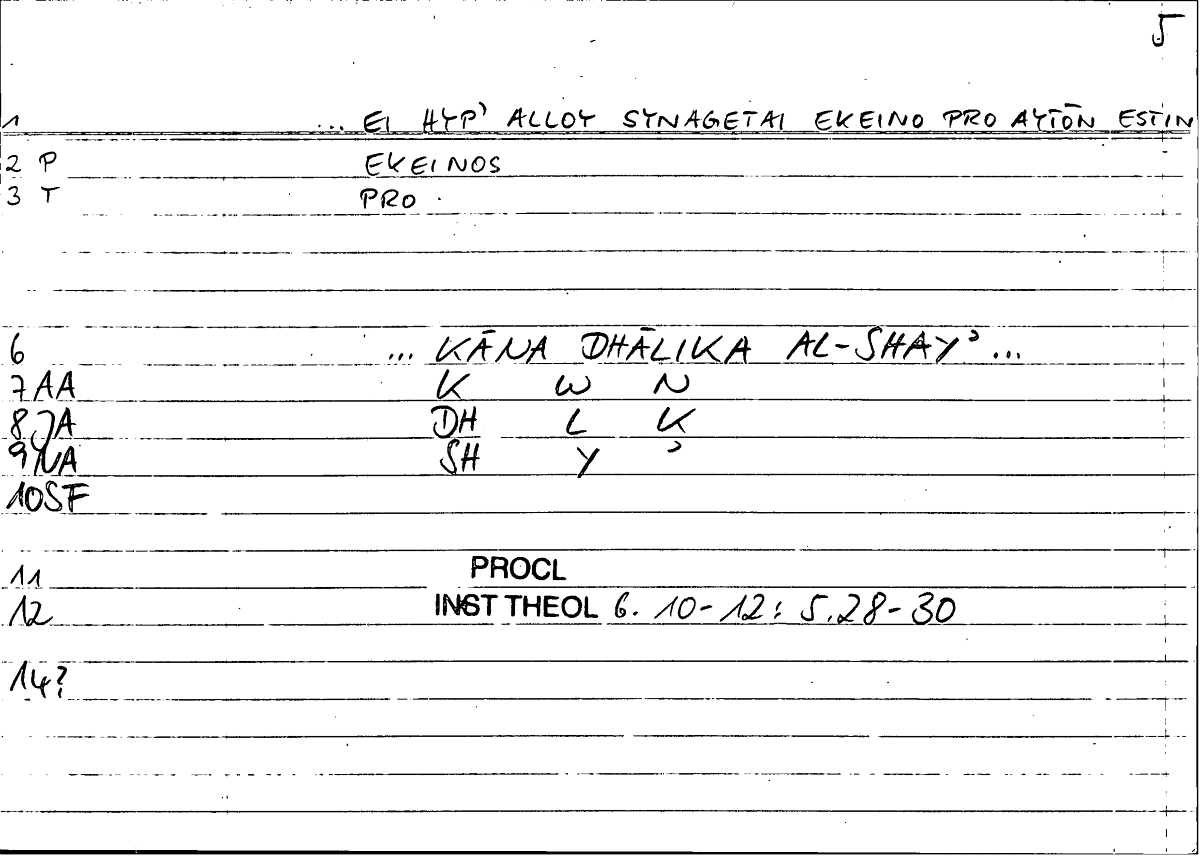 5
1 ... EI HYP' ALLOY SYNAGETAI EKEINO PRO AYTŌN ESTIN
2 P EKEINOS
3 T PRO
6 ... KĀNA DHĀLIKA AL-SHAYʾ ...
7 AA K W N
8 JA DH L K
9 NA SH Y ʾ
10 SF
11 PROCL
12 INST THEOL 6. 10-12: 5.28-30
14?